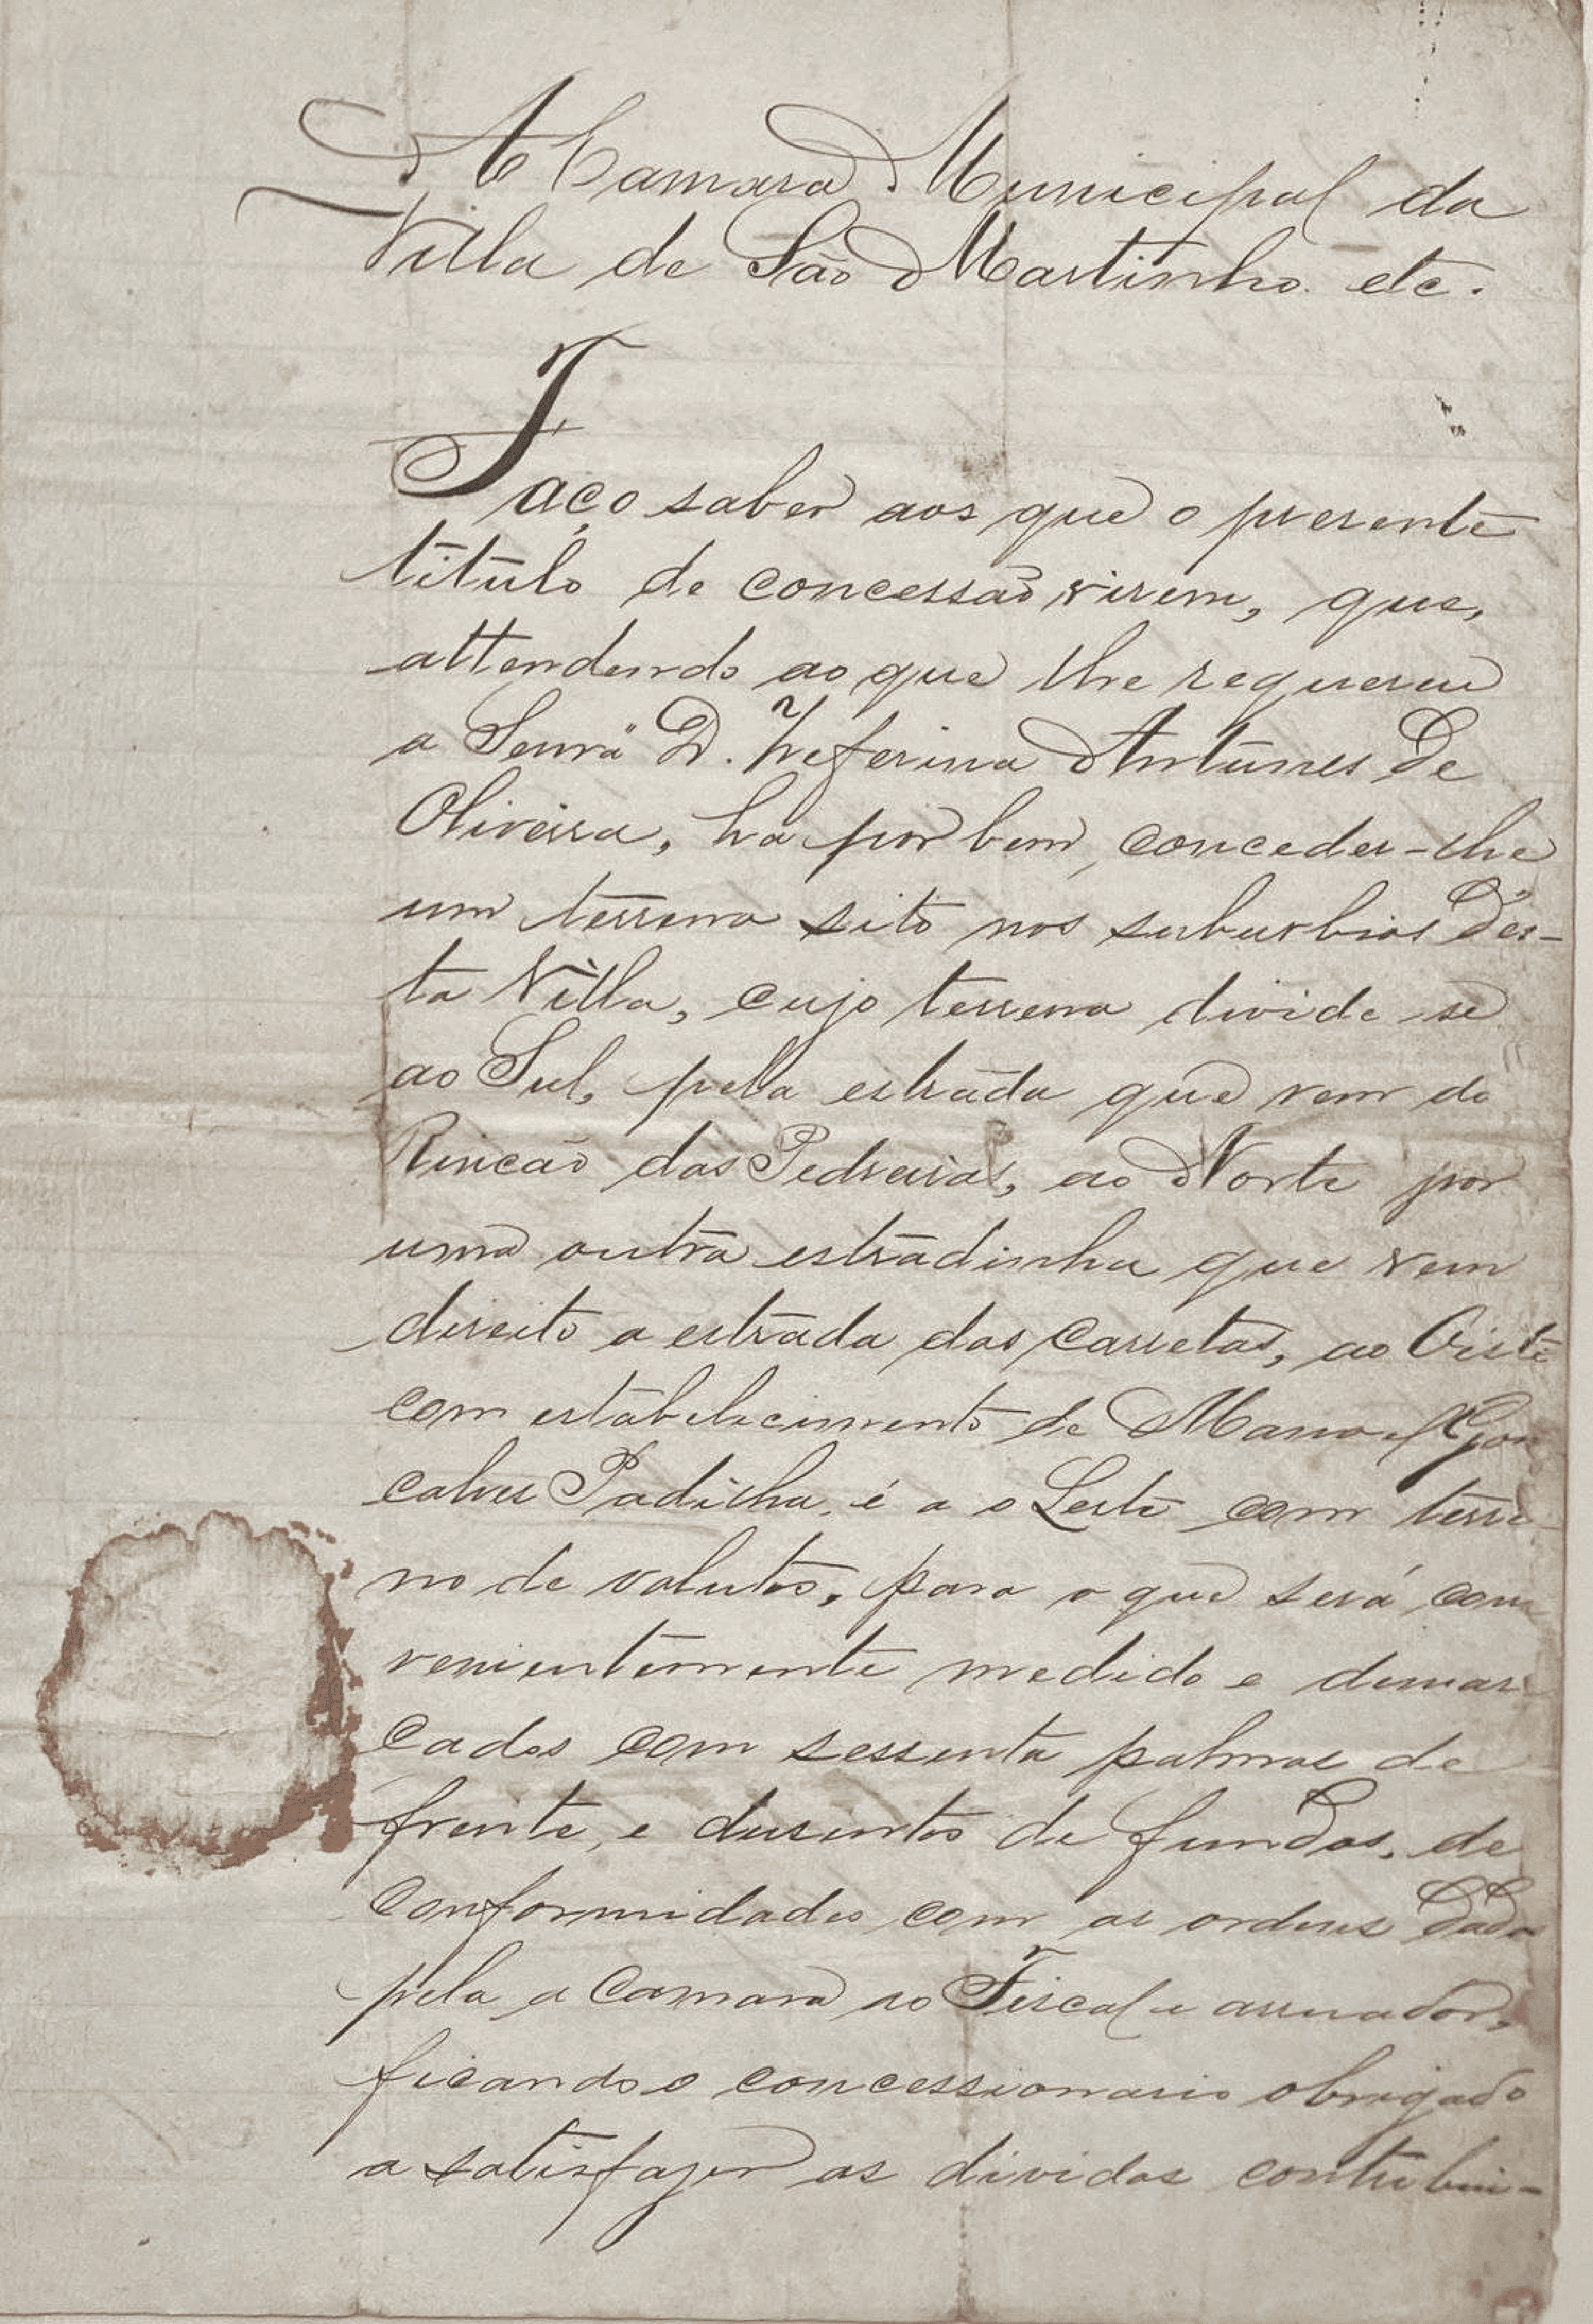 A Camara Municipal da
Villa de São Martinho etc.
Faço saber aos que o presente
titulo de concessão virem, que,
attendendo ao que lhe requereu
a Senrª D. Zeferina Antunes de
Oliveira, ha por bem, conceder-lhe
um terreno sito nos suburbios des-
ta Villa, cujo terreno divide-se
ao Sul, pela estrada que vem do
Rincão das Pedreiras, ao Norte por
uma outra estradinha que vem
direito a estrada das carretas, ao Oiste
com estabelecimento de Manoel Gon
calves Padilha, é a o Leste com terre
no de volutos, para o que será con
venientemente medido e demar
cados com sessenta palmos de
frente, e dusentos de fundos, de
conformidades com as ordens dada
pela a Camara ao Fiscal e arruador,
ficando o concessionario obrigado
a satisfazer as dividas contribui-